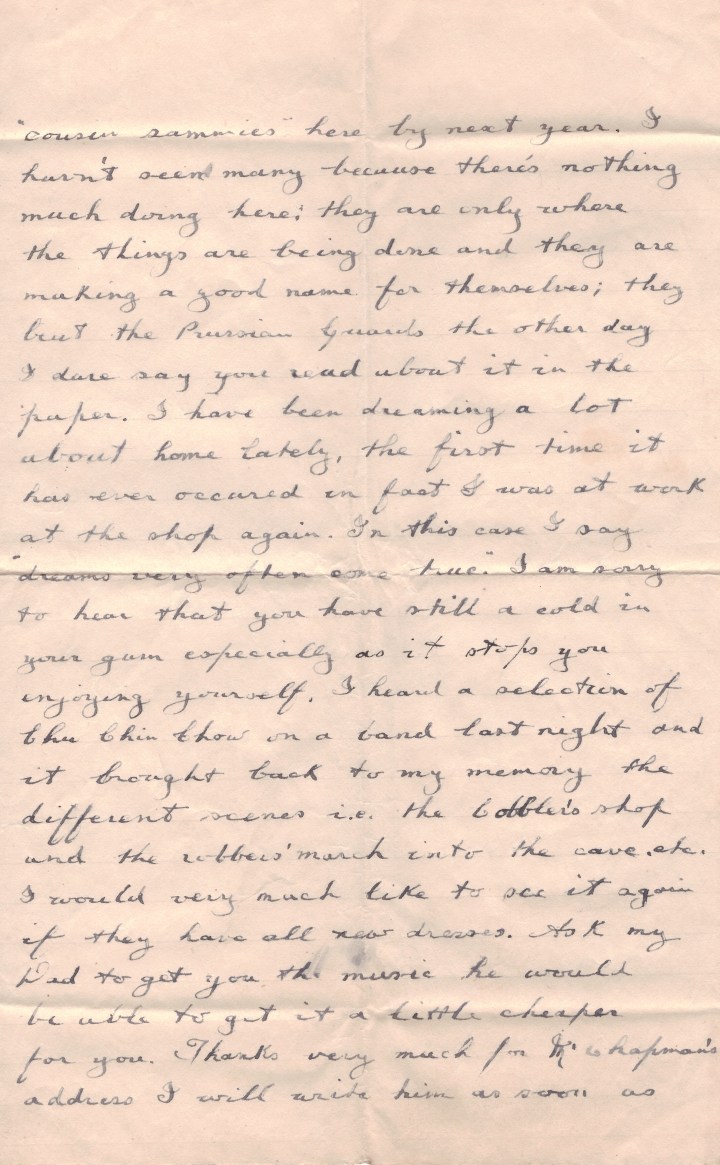 "cousin sammies" here by next year. I
havn't seen many because there's nothing
much doing here; they are only where
the things are being done and they are
making a good name for themselves; they
beat the Prussian Guards the other day
I dare say you read about it in the
paper. I have been dreaming a lot
about home lately, the first time it
has ever occured in fact I was at work
at the shop again. In this case I say
"dreams very often come true". I am sorry
to hear that you have still a cold in
your gum especially as it stops you
enjoying yourself. I heard a selection of
Chu Chin Chow on a band last night and
it brought back to my memory the
different scenes i.e. the cobbler's shop
and the robbers' march into the cave. etc.
I would very much like to see it again
if they have all new dresses. Ask my
Dad to get you the music he would
be able to get it a little cheaper
for you. Thanks very much for Mr Chapman's
address I will write him as soon as